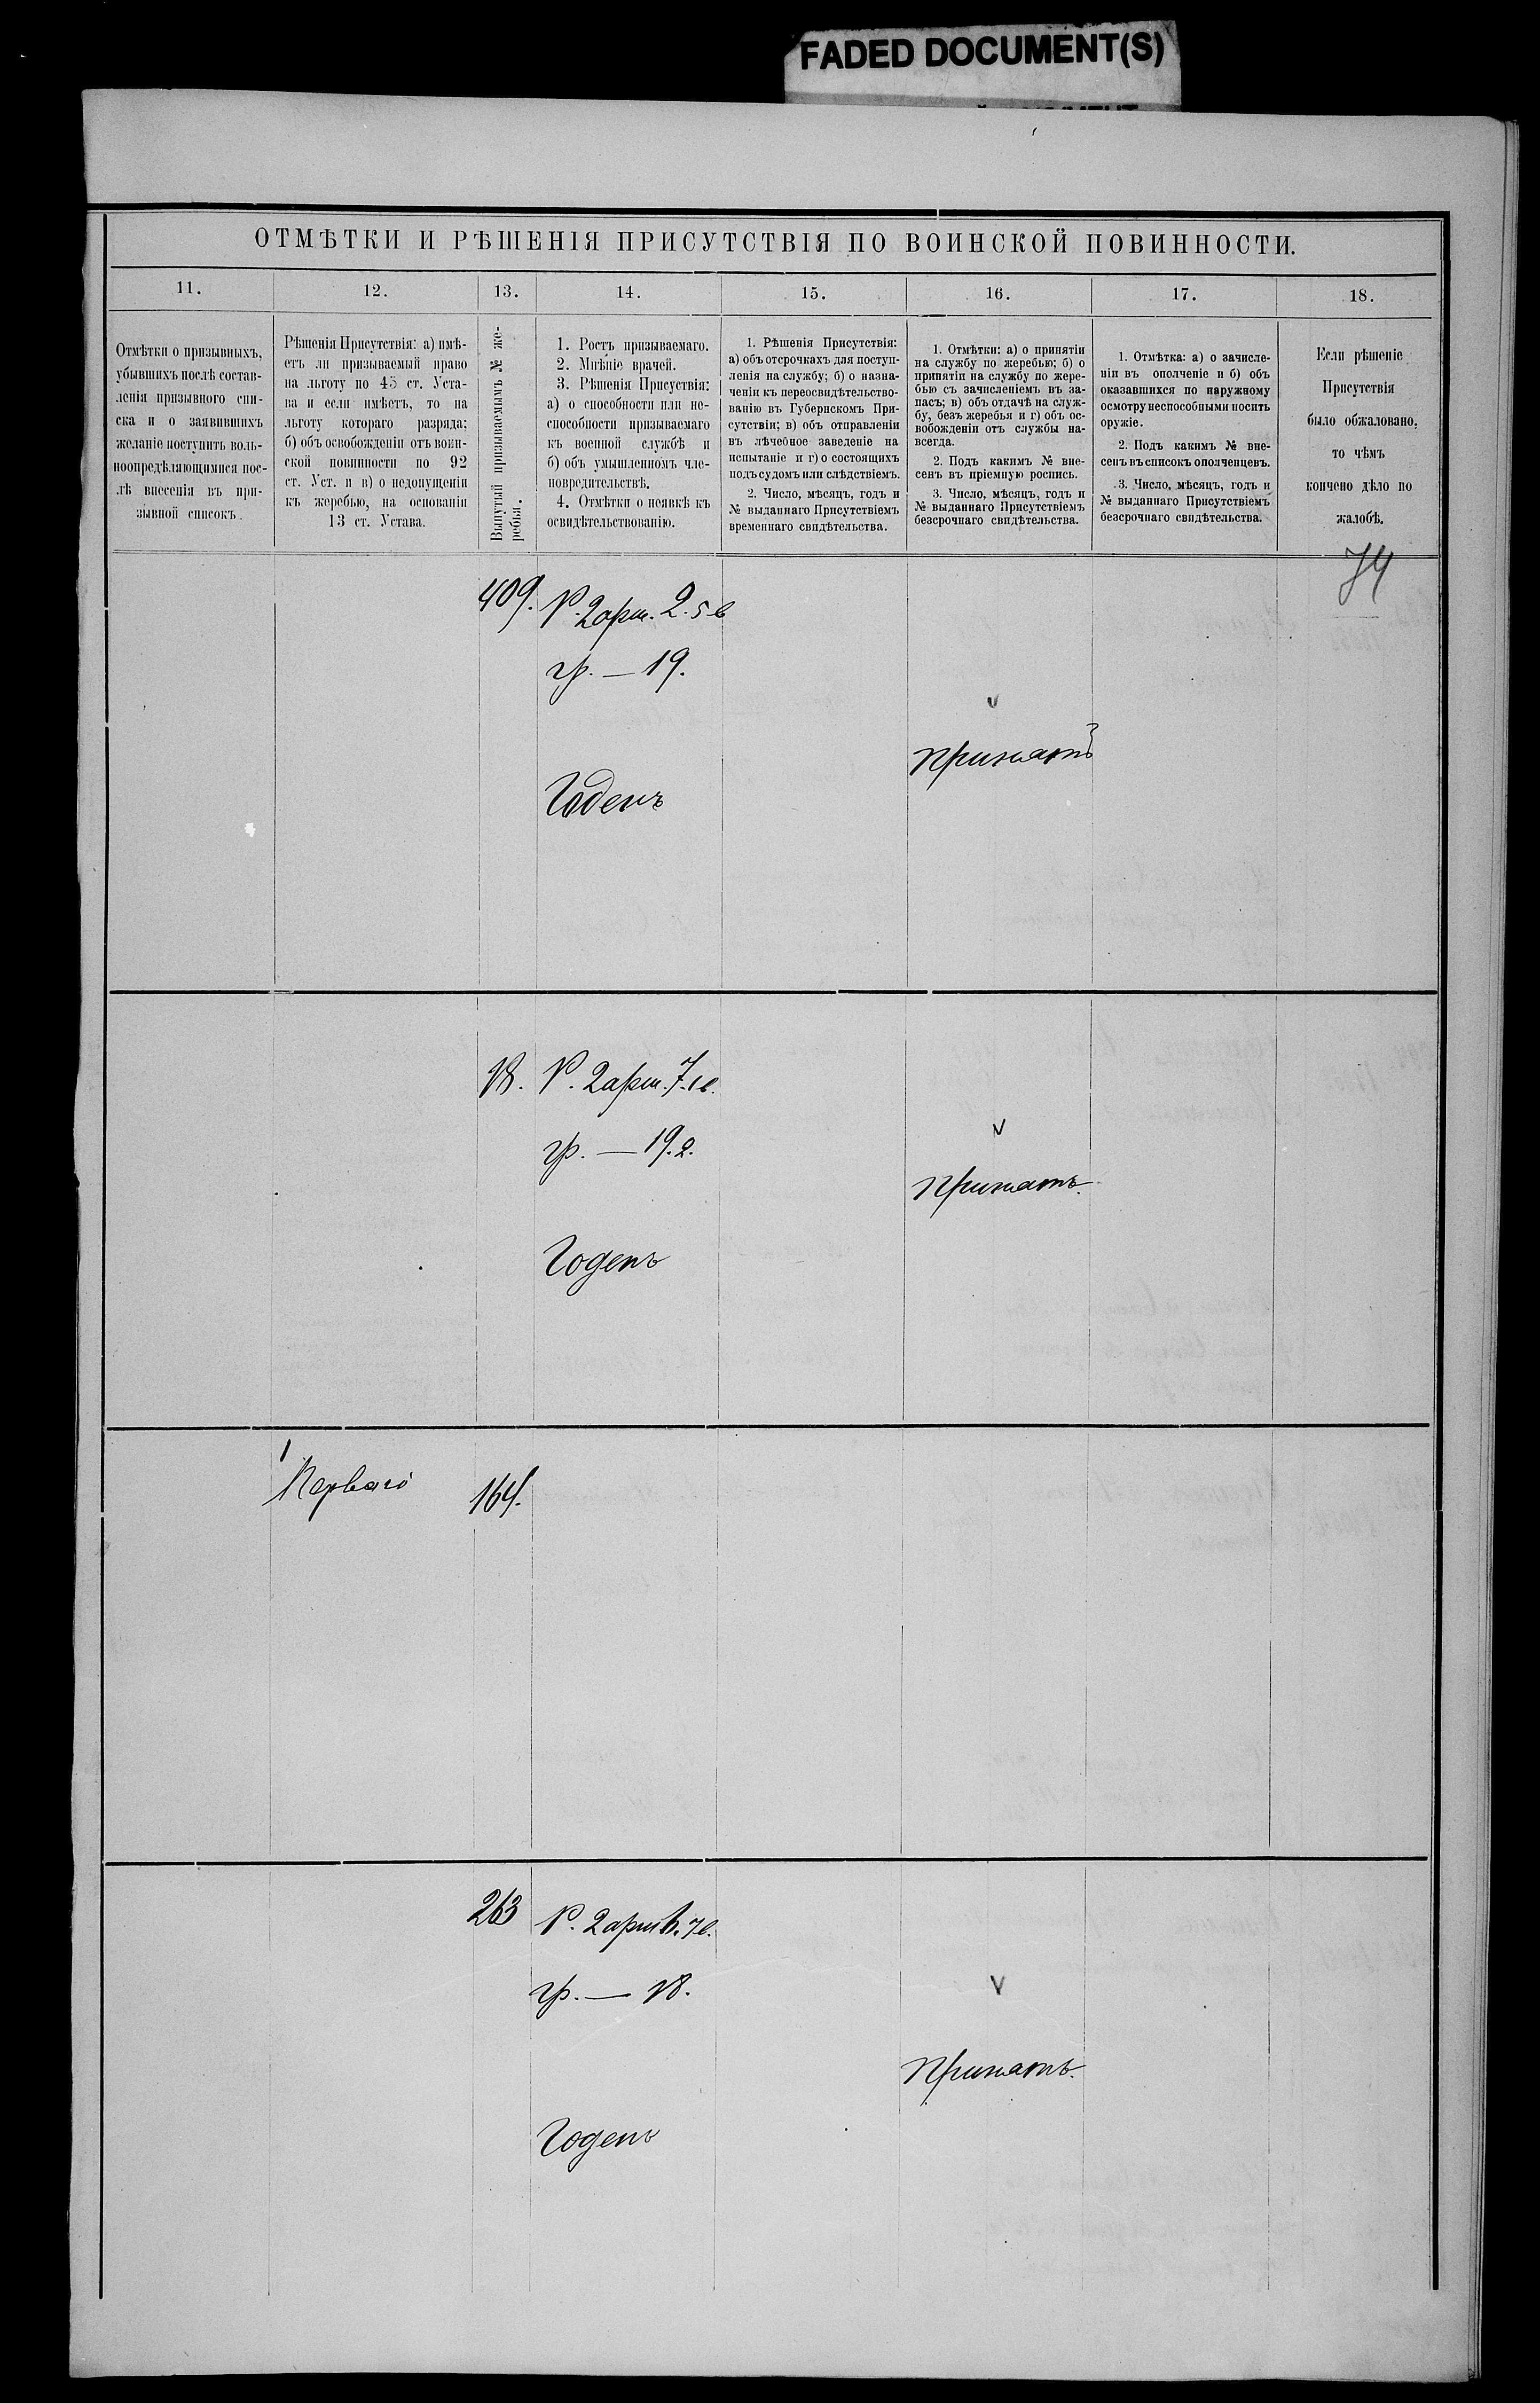 FADED DOCUMENT(S)
ОТМѢТКИ И РѢШЕНІЯ ПРИСУТСТВІЯ ПО ВОИНСКОЙ ПОВИННОСТИ.
11. 12. 13. 14. 15. 16. 17. 18.
Отмѣтки о призывныхъ,
убывшихъ послѣ состав-
ленія призывного спи-
ска и о заявившихъ
желаніе поступить воль-
ноопредѣляющимися пос-
лѣ внесенія въ при-
зывной списокъ.
Рѣшенія Присутствія: а) имѣ-
етъ ли призываемый право
на льготу по 45 ст. Уста-
ва и если имѣетъ, то на
льготу котораго разряда;
б) объ освобожденіи отъ воин-
ской повинности по 92
ст. Уст. и в) о недопущеніи
къ жеребью, на основаніи
13 ст. Устава.
Вынутый призываемымъ № же-
ребья.
1. Ростъ призываемаго.
2. Мнѣніе врачей.
3. Рѣшенія Присуствія:
а) о способности или не-
способности призываемаго
къ военной службѣ и
б) объ умышленномъ чле-
новредительствѣ.
4. Отмѣтки о неявкѣ къ
освидѣтельствованію.
1. Рѣшенія Присутствія:
а) объ отсрочкахъ для поступ-
ленія на службу; б) о назна-
ченіи къ переосвидѣтельство-
ванію въ Губернскомъ При-
сутствіи; в) объ отправленіи
въ лѣчебное заведеніе на
испытаніе и г) о состоящихъ
подъ судомъ или слѣдствіемъ.
2. Число, мѣсяцъ, годъ и
№ выданнаго Присутствіемъ
временнаго свидѣтельства.
1. Отмѣтки: а) о принятіи
на службу по жеребью; б) о
принятіи на службу по жере-
бью съ зачисленіемъ въ за-
пасъ; в) объ отдачѣ на служ-
бу, безъ жеребья и г) объ ос-
вобожденіи отъ службы на-
всегда.
2. Подъ какимъ № вне-
сенъ въ пріемную роспись.
3. Число, мѣсяцъ, годъ и
№ выданнаго Присутствіемъ
безсрочнаго свидѣтельства.
1. Отмѣтка: а) о зачисле-
ніи въ ополченіе и б) объ
оказавшихся по наружному
осмотру неспособными носить
оружіе.
2. Подъ какимъ № вне-
сенъ въ списокъ ополченцевъ.
3. Число, мѣсяцъ, годъ и
№ выданнаго Присутствіемъ
безсрочнаго свидѣтельства.
Если рѣшеніе
Присутствія
было обжаловано,
то чѣмъ
кончено дѣло по
жалобѣ.
74
409. Р. 2 арш. 2. 5 в
гр. — 19.
принятъ
Годенъ
18. Р. 2 арш. 7. в.
гр. — 19.2.
принятъ.
Годенъ
1
Перваго 164.
263 Р. 2 арш 6. 7 в.
гр. — 18.
принятъ.
Годенъ